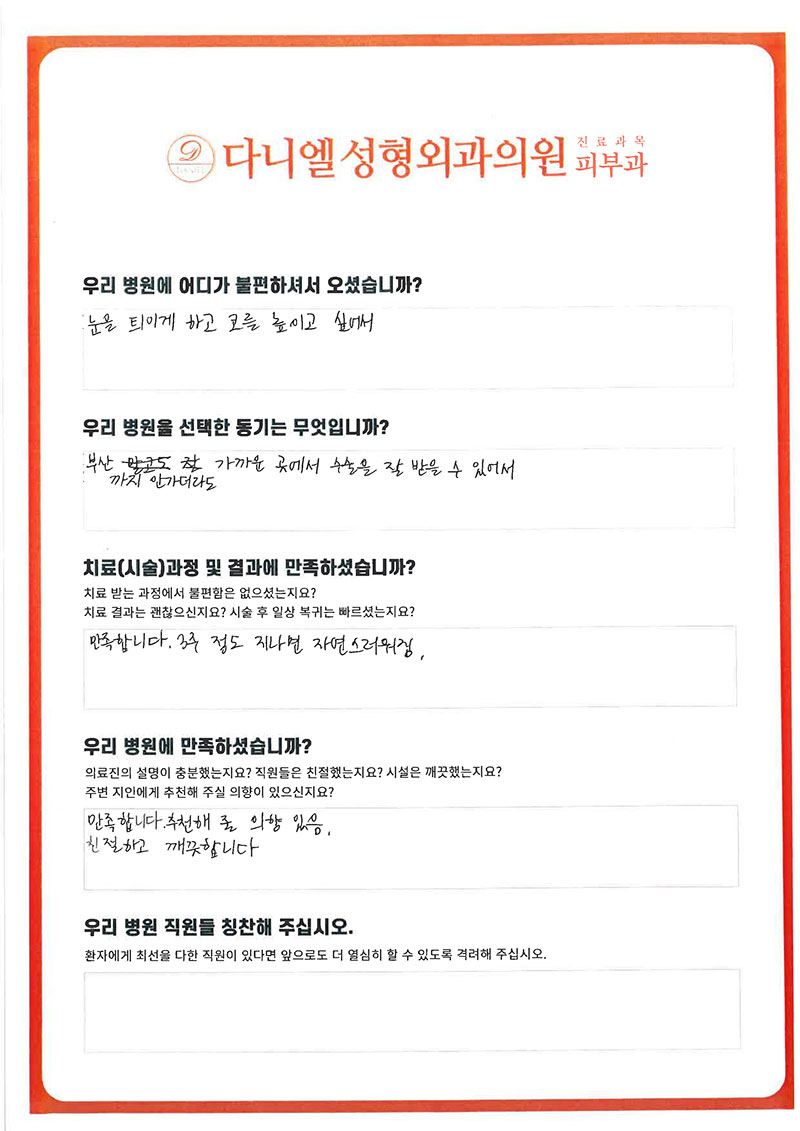 다니엘성형외과의원
진료과목
피부과
우리 병원에 어디가 불편하셔서 오셨습니까?
눈을 틔이게 하고 코를 높이고 싶어서
우리 병원을 선택한 동기는 무엇입니까?
부산 가까운 곳에서 수술을 잘 받을 수 있어서
까지 안가더라도
치료(시술)과정 및 결과에 만족하셨습니까?
치료 받는 과정에서 불편함은 없으셨는지요?
치료 결과는 괜찮으신지요? 시술 후 일상 복귀는 빠르셨는지요?
만족합니다. 3주 정도 지나면 자연스러워짐.
우리 병원에 만족하셨습니까?
의료진의 설명이 충분했는지요? 직원들은 친절했는지요? 시설은 깨끗했는지요?
주변 지인에게 추천해 주실 의향이 있으신지요?
만족합니다. 추천해 줄 의향 있음.
친절하고 깨끗합니다
우리 병원 직원들 칭찬해 주십시오.
환자에게 최선을 다한 직원이 있다면 앞으로도 더 열심히 할 수 있도록 격려해 주십시오.